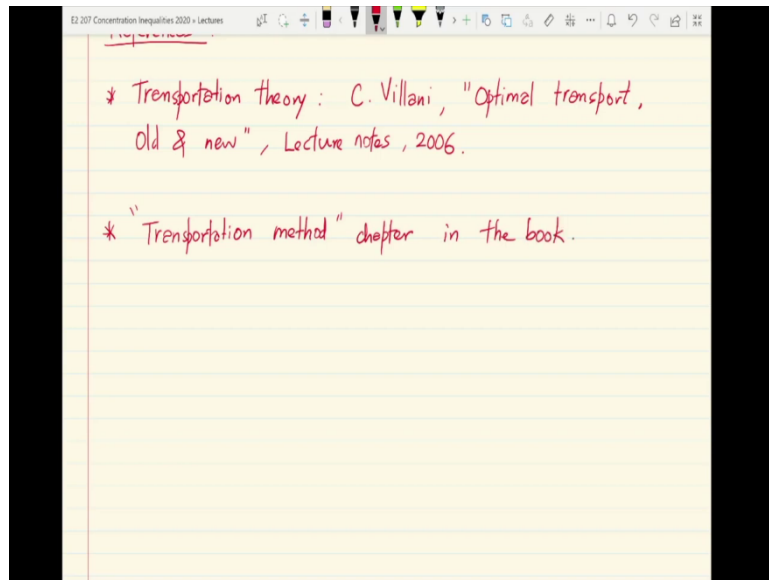 E2 207 Concentration Inequalities 2020 » Lectures
References :
* Transportation theory : C. Villani, "Optimal transport,
Old & new", Lecture notes, 2006.
* "Transportation method" chapter in the book.